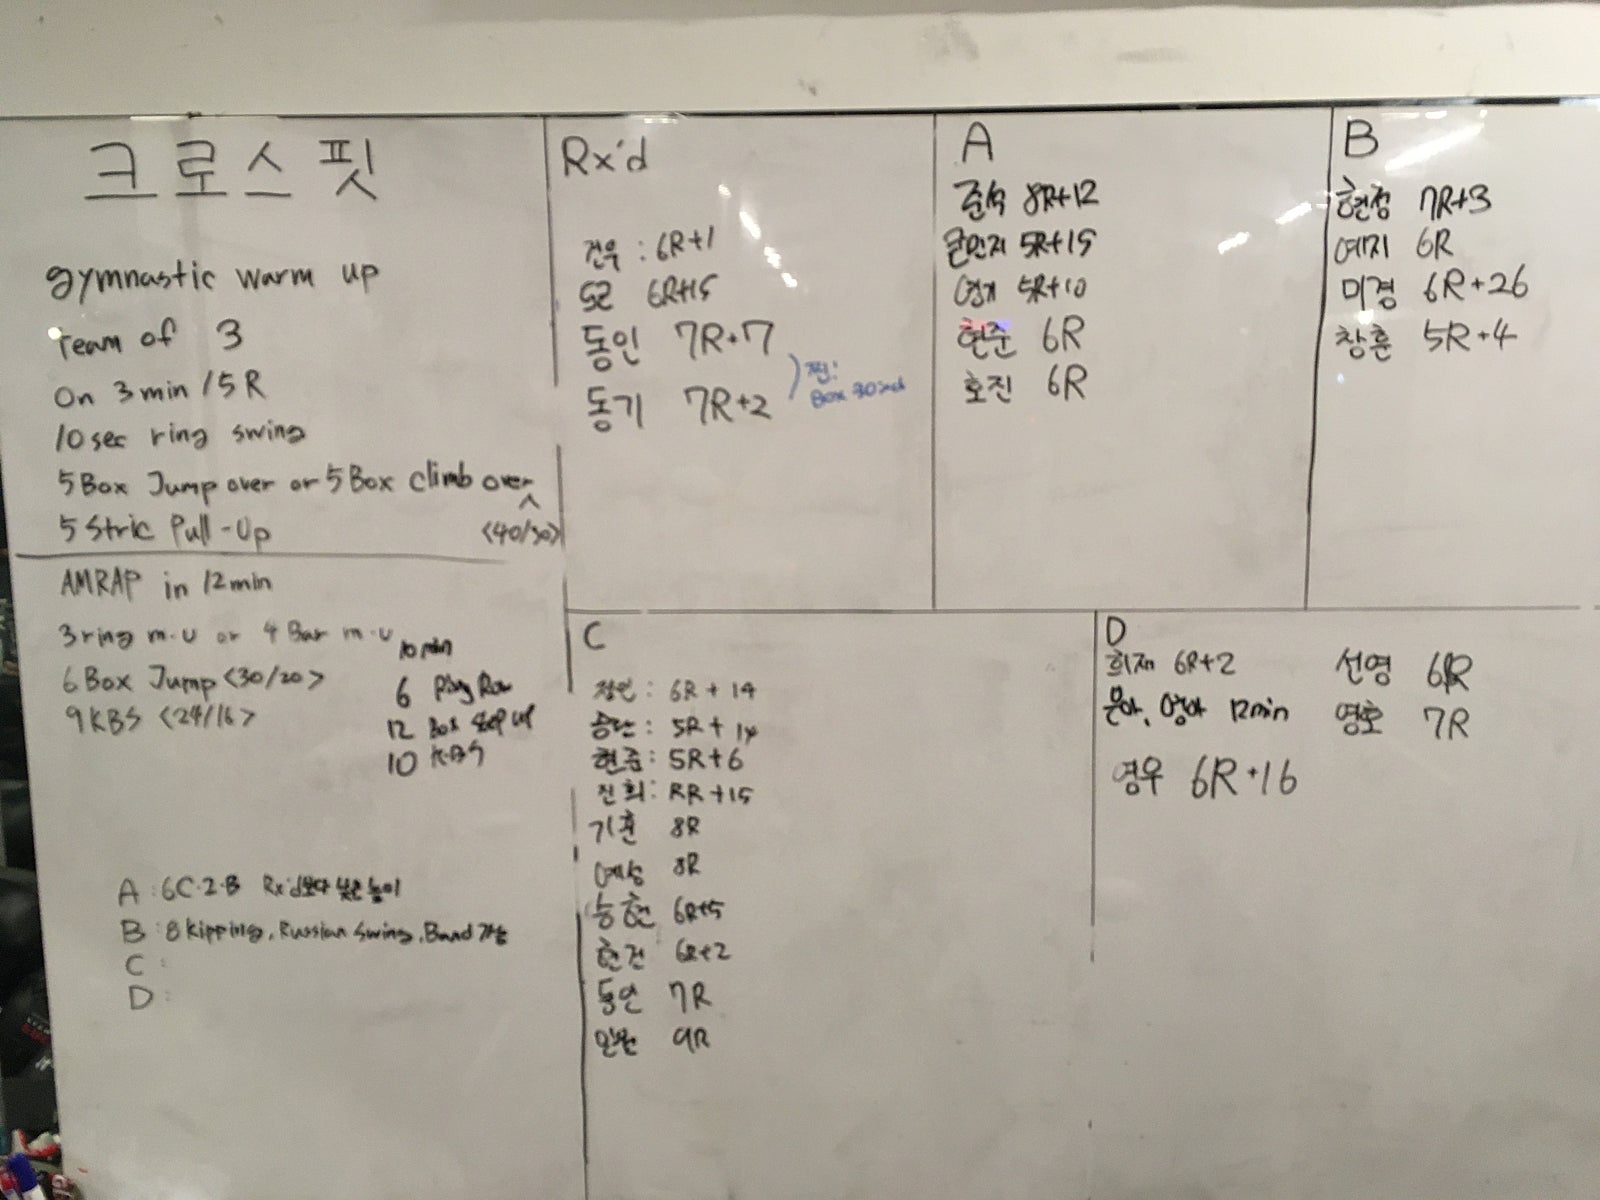 크로스핏
gymnastic warm up
Team of 3
On 3min/5R
10sec ring swing
5Box Jump over or 5Box climb over
5 Stric Pull-Up <40/30>
AMRAP in 12min
3ring m.u or 4 Bar m.u
6Box Jump <30/20>
9KBS <24/16>
10min
6 Ring Row
12 Box step up
10 KBS
A: 6C.2.B Rx'd보다 낮은 높이
B: 8 Kipping, Russian Swing, Band 가능
C:
D:
Rx'd
건우: 6R+1
6R+15
동인 7R+7
동기 7R+2
Box 30inch
A
준석 8R+12
5R+15
5R+10
현준 6R
호진 6R
B
현정 7R+3
예지 6R
미경 6R+26
창훈 5R+4
C
정인: 6R+14
5R+14
현준: 5R+6
진희: +15
기훈 8R
예성 8R
승현 6R+5
현건 6R+2
동인 7R
9R
D
희재 6R+2
12min
영우 6R+16
선영 6R
영호 7R